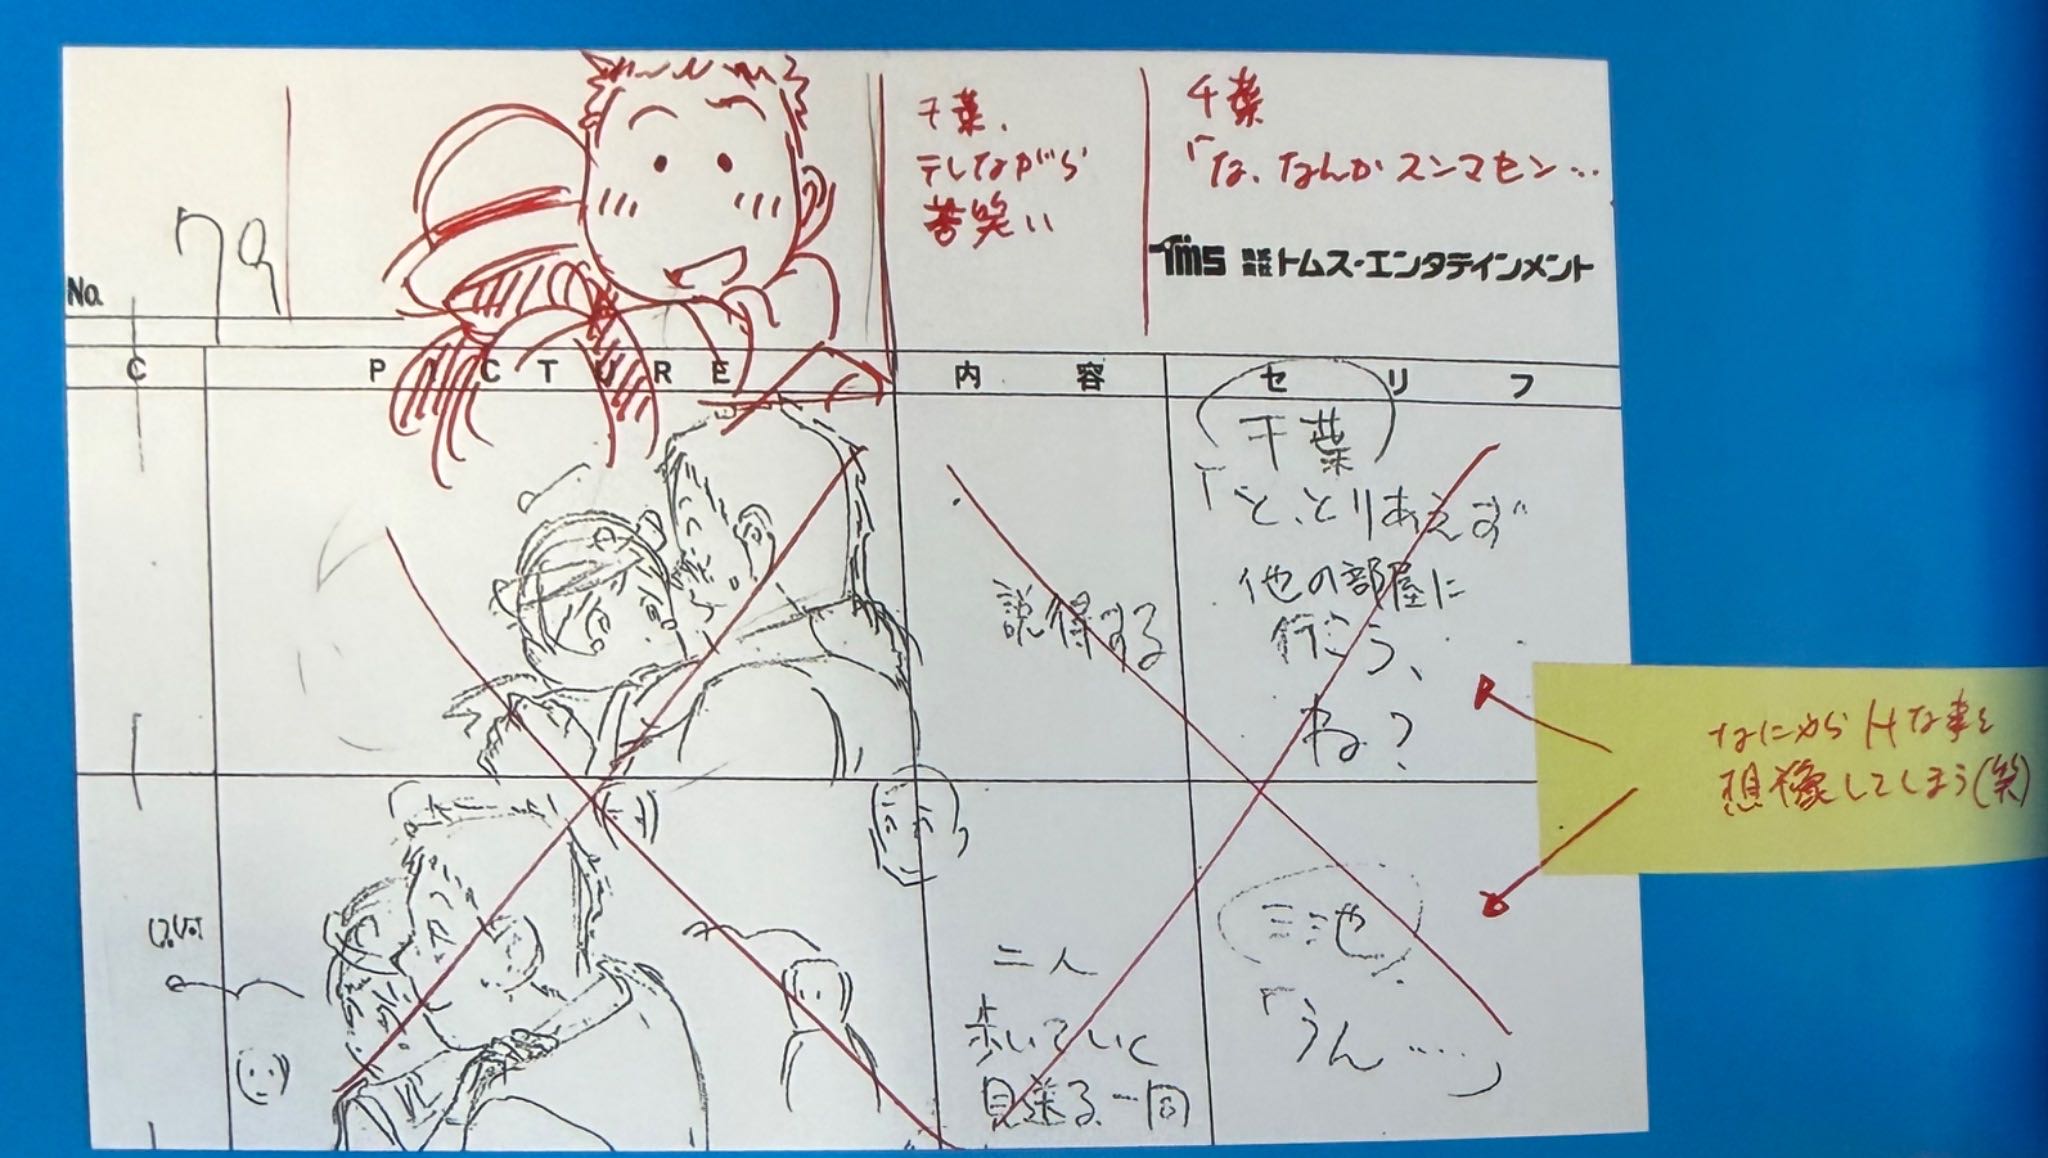 千葉、
テレながら
苦笑い
千葉
「な、なんかスンマセン…
TMS 株式会社 トムス・エンタテインメント
No. 79
C PICTURE 内容 セリフ
説得する
千葉
「と、とりあえず
他の部屋に
行こう、
ね?
なにやらHな事を
想像してしまう(笑)
二人
歩いていく
見送る一同
三池
「うん……」